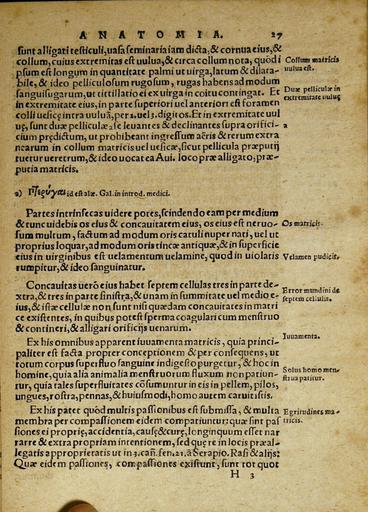 ANATOMIA. 27
sunt alligati testiculi, uasa seminaria iam dicta, & cornua eius, &
collum, cuius extremitas est uulua, & circa collum nota, quòd i
psum est longum in quantitate palmi ut uirga, latum & dilata-
bile, & ideo pelliculosum rugosum, rugas habens ad modum
sanguisugarum, ut titillatio ei ex uirga in coitu contingat. Et
in extremitate eius, in parte superiori uel anteriori est foramen
colli uesicę intra uuluā, per 2. uel 3. digitos. Et in extremitate uul
uę, sunt duæ pelliculæ: se leuantes & declinantes supra orifici-
cium prędictum, ut prohibeant ingressum aëris & rerum extra
nearum in collum matricis uel uesicæ, sicut pellicula præputij
tuetur ueretrum, & ideo uocat ea Aui. loco præ alligato; præ-
putia matricis.
Collum matricis
uulua est.
Duæ pelliculæ in
extremitate uuluę
a
a) πτερύγαι id est alæ. Gal. in introd. medici.
Partes intrinsecas uidere potes, scindendo eam per medium
& tunc uidebis os eius & concauitatem eius, os eius est neruo-
sum multum, factum ad modum oris catuli nuper nati, uel ut
proprius loquar, ad modum oris tincæ antiquæ, & in superficie
eius in uirginibus est uelamentum uelamine, quod in uiolatis
rumpitur, & ideo sanguinatur.
Os matricis.
Velamen pudicis.
Concauitas uerò eius habet septem cellulas tres in parte de-
xtra, & tres in parte sinistra, & unam in summitate uel medio e-
ius, & istæ cellulæ non sunt nisi quædam concauitates in matri
ce existentes, in quibus potest sperma coagulari cum menstruo
& contineri, & alligari orificijs uenarum.
Error mundini de
septem cellulis.
Ex his omnibus apparent iuuamenta matricis, quia princi-
paliter est facta propter conceptionem & per consequens, ut
totum corpus superfluo sanguine indigesto purgetur, & hoc in
homine, quia alia animalia menstruorum fluxum non patiun-
tur, quia tales superfluitates cōsumuntur in eis in pellem, pilos,
ungues, rostra, pennas, & huiusmodi, homo autem caruit istis.
Iuuamenta.
Solus homo men-
strua patitur.
Ex his patet quòd multis passionibus est submissa, & multa
membra per compassionem eidem compatiuntur: quæ sint pas
siones ei proprię, accidentia, causę & curę, longinquum esset nar
rare & extra propriam intentionem, sed quęre in locis præal-
legatis appropriatis ut in 3. cañ. fen. 21. à Serapio. Rasi & alijs:
Quæ eidem passiones, compassiones existunt, sunt tot quot
Egritudines ma-
tricis.
H 3